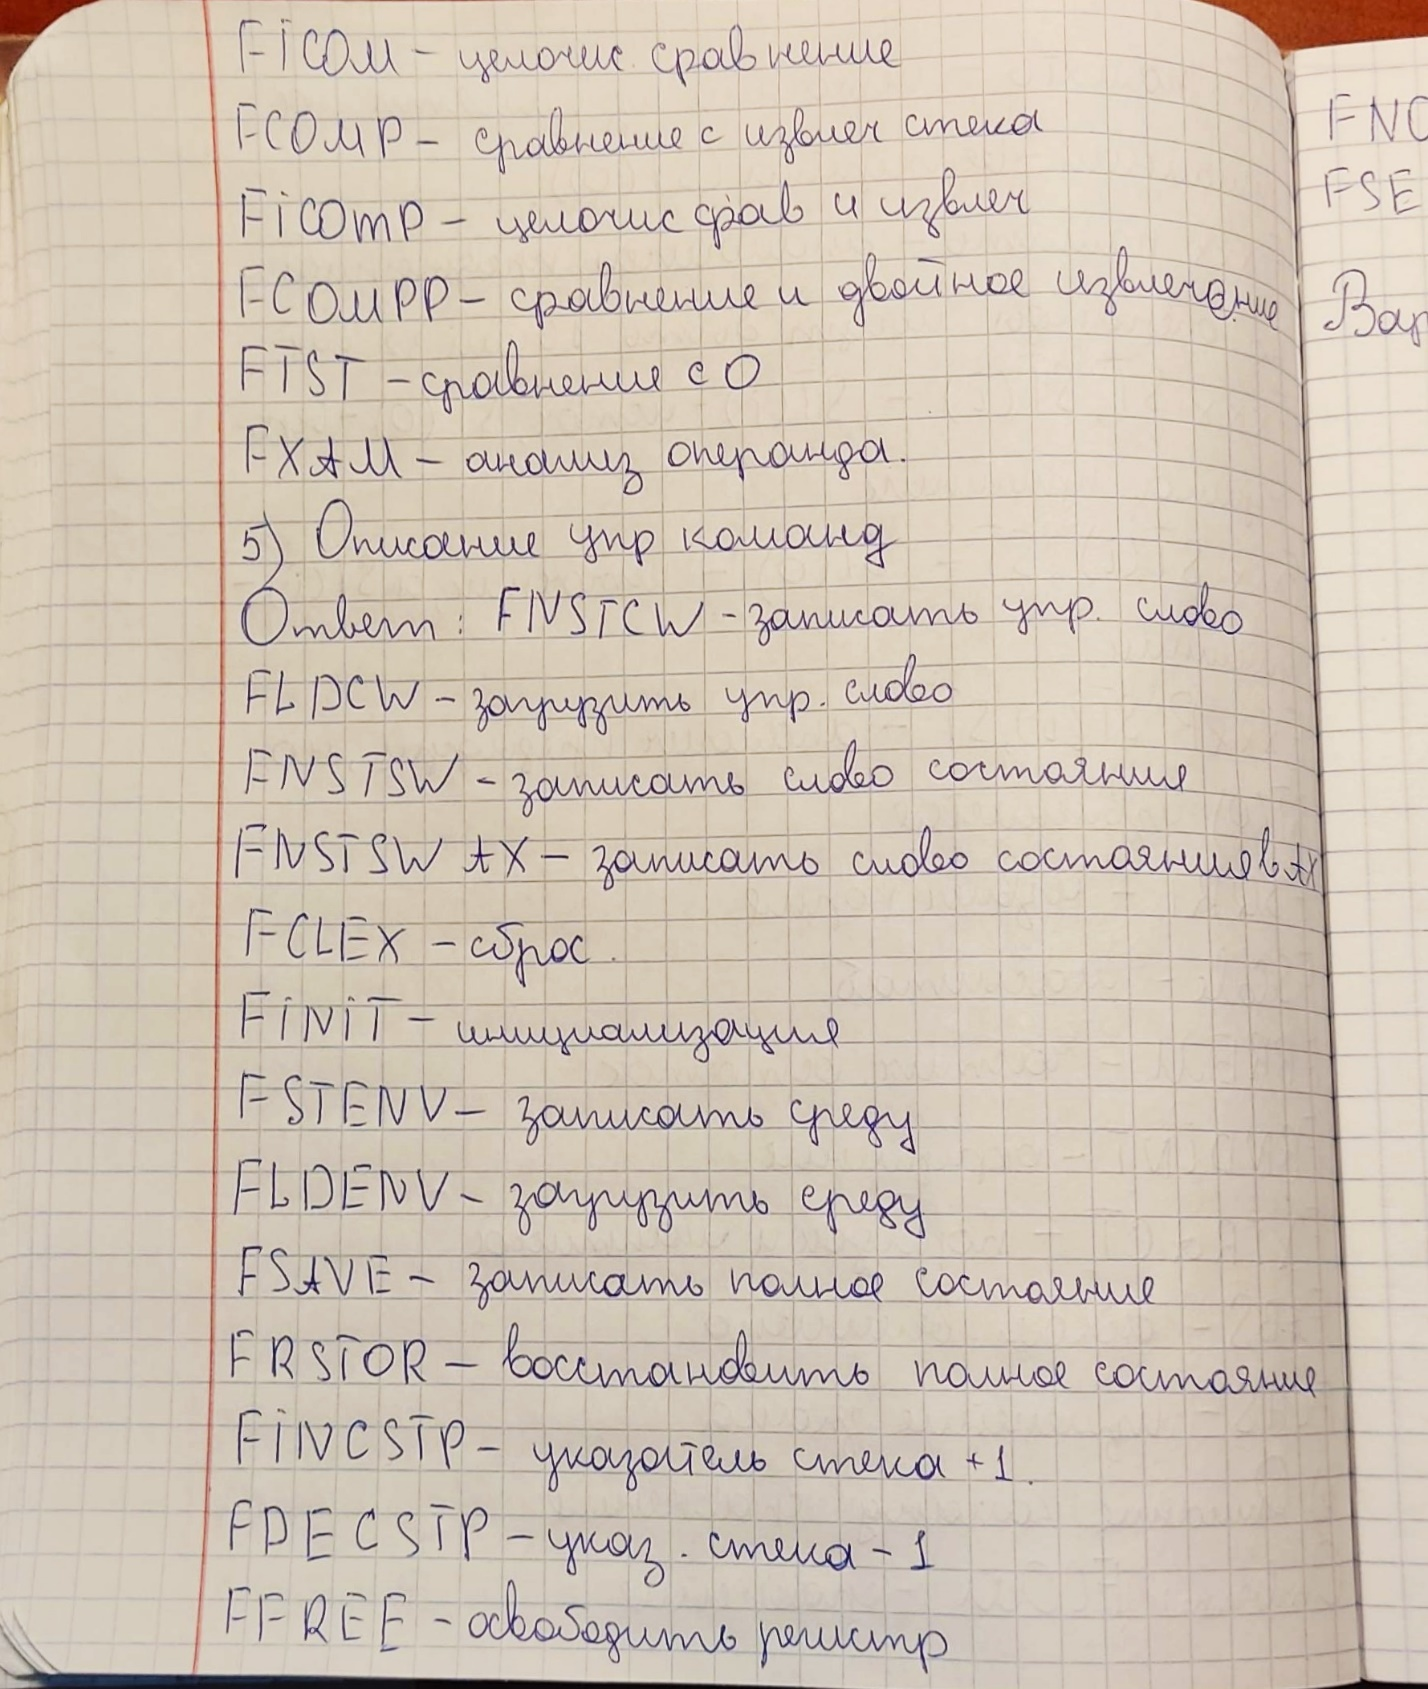 FiCOM - целочис. сравнение
FCOMP - сравнение с извлеч стека
FiCOmP - целочис срав и извлеч
FCOMPP - сравнение и двойное извлечение
FTST - сравнение с 0
FXAM - анализ операнда.
5) Описание упр команд
Ответ: FNSTCW - записать упр. слово
FLDCW - загрузить упр. слово
FNSTSW - записать слово состояния
FNSTSW AX - записать слово состояния в AX
FCLEX - сброс.
FiNiT - инициализация
FSTENV - записать среду
FLDENV - загрузить среду
FSAVE - записать полное состояние
FRSTOR - восстановить полное состояние
FiNCSTP - указатель стека +1.
FDECSTP - указ. стека - 1
FFREE - освободить регистр
FNO
FSE
Вар